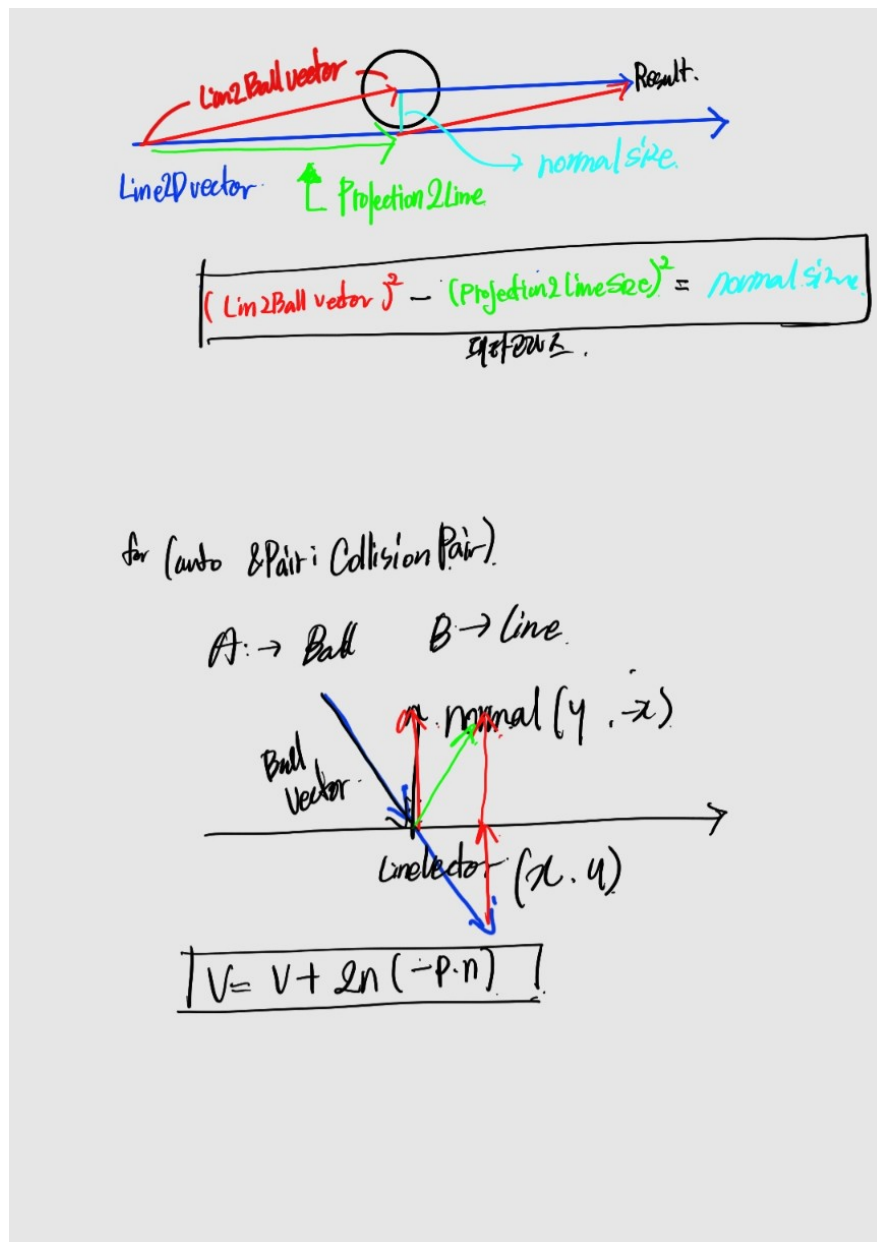 Lin2Ball vector
Result.
normal size.
Line2D vector.
Projection2Line
(Lin2Ball vector)² - (Projection2LineSize)² = normal size
피타고라스.
for (auto &Pair : CollisionPair)
A: → Ball B → Line.
n. normal (y, -x)
Ball
Vector.
LineVector (x. y)
V = V + 2n(-P·n)